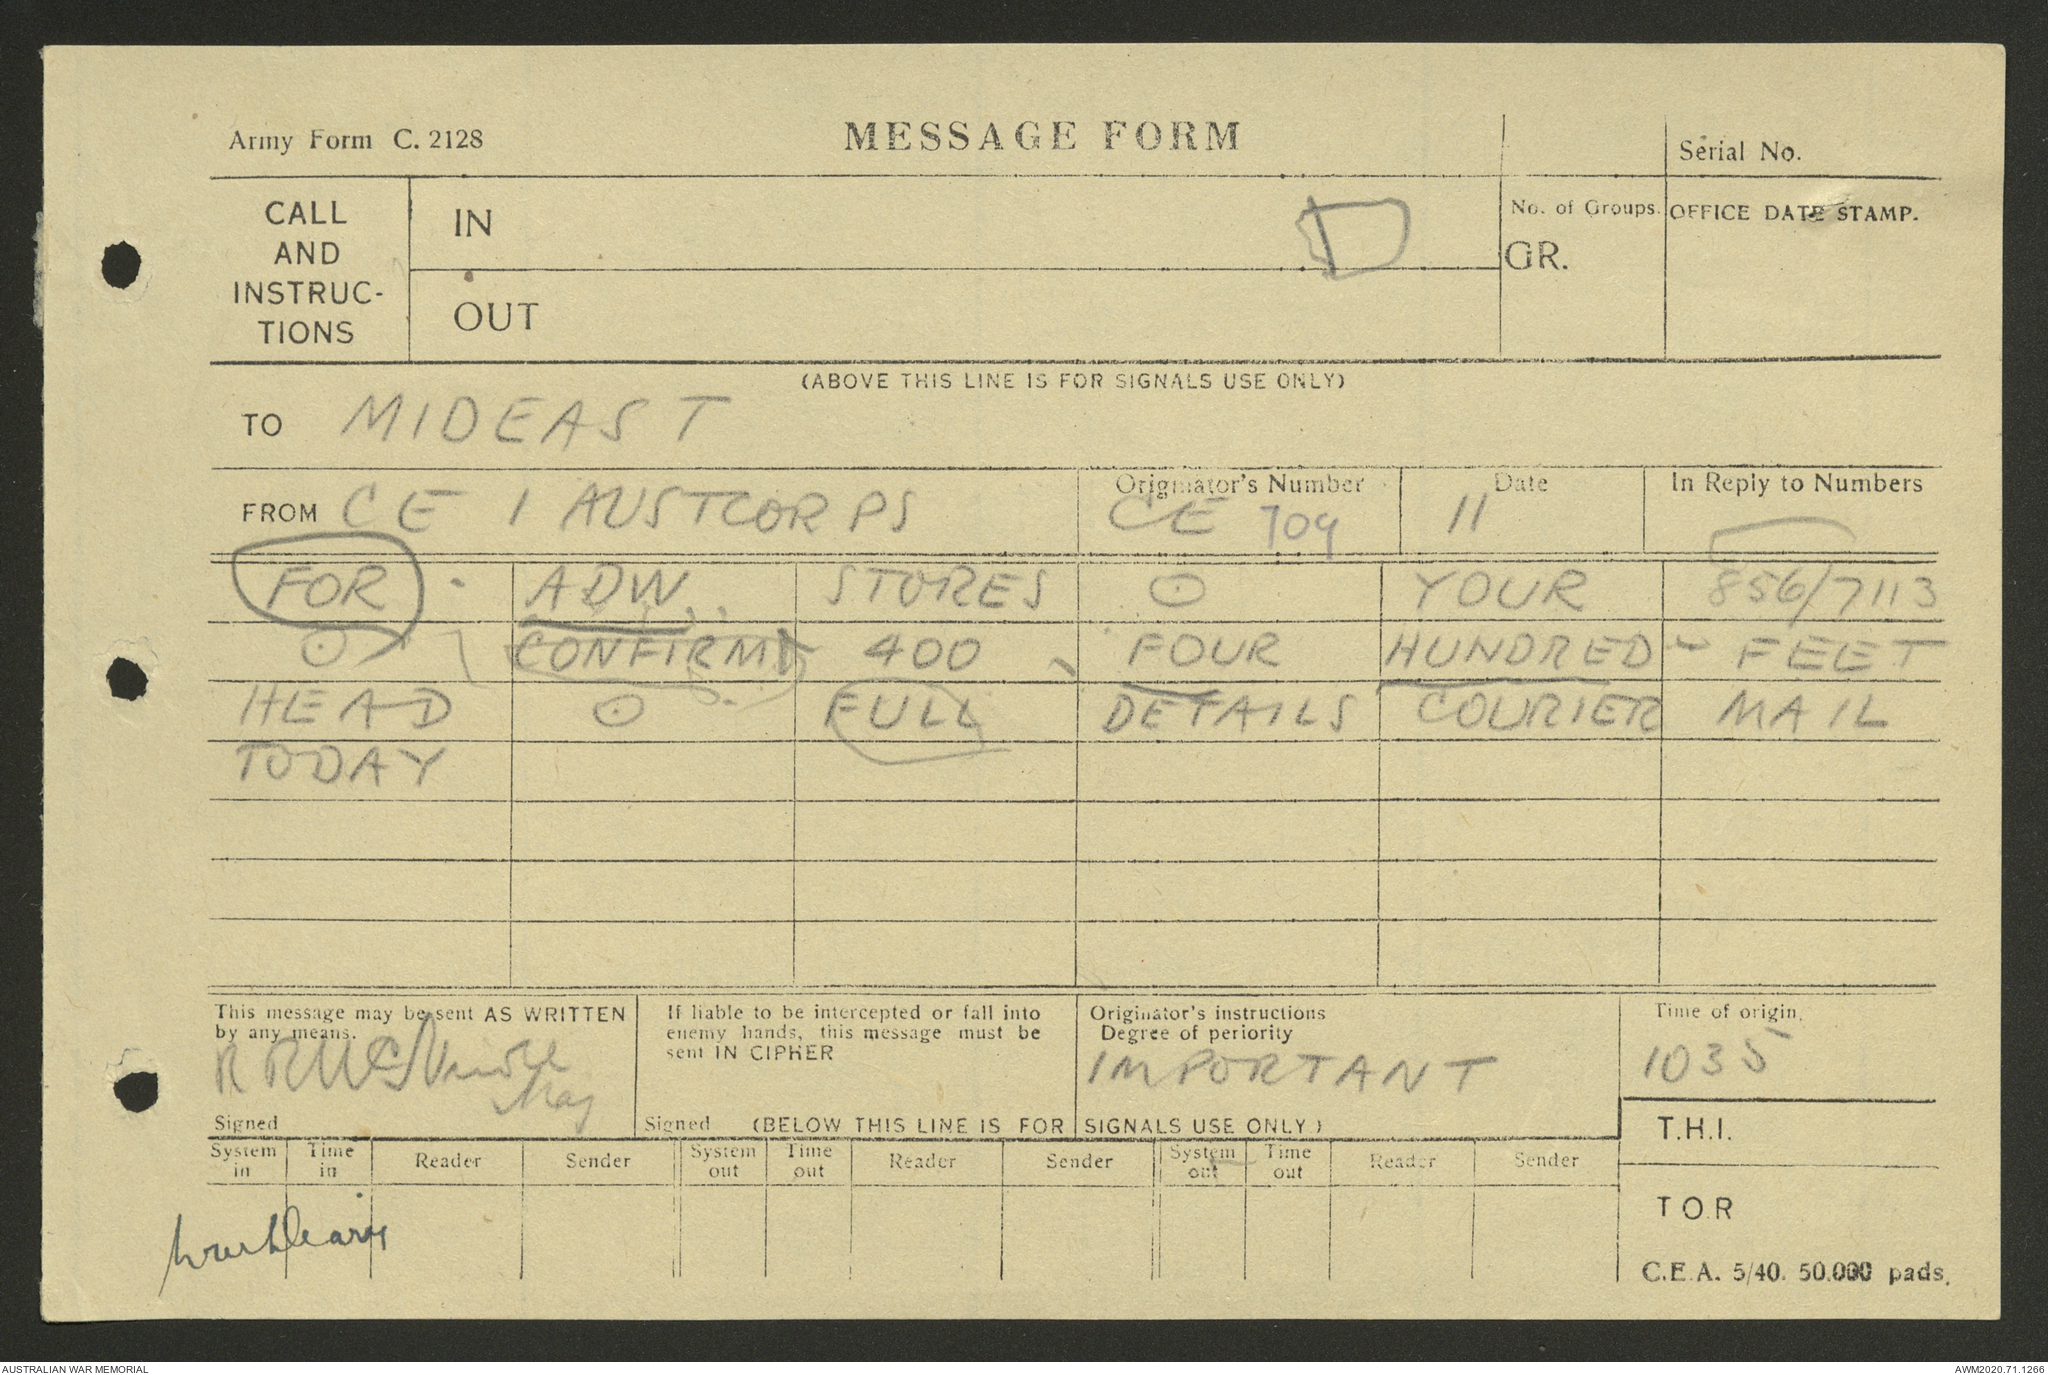 Army Form C. 2128
MESSAGE FORM
Serial No.
CALL AND INSTRUC-TIONS
IN
OUT
No. of Groups.
GR.
OFFICE DATE STAMP.
(ABOVE THIS LINE IS FOR SIGNALS USE ONLY)
TO MIDEAST
FROM CE 1 AUSTCORPS
Originator's Number
CE 709
Date
11
In Reply to Numbers
FOR ADW STORES ⊙ YOUR 856/7113
⊙ CONFIRM 400 FOUR HUNDRED FEET
HEAD ⊙ FULL DETAILS COURIER MAIL
TODAY
This message may be sent AS WRITTEN
by any means.
Maj
Signed
If liable to be intercepted or fall into
enemy hands, this message must be
sent IN CIPHER
Signed
Originator's instructions
Degree of periority
IMPORTANT
Time of origin.
1035
(BELOW THIS LINE IS FOR SIGNALS USE ONLY)
T.H.I.
System in Time in Reader Sender System out Time out Reader Sender System out Time out Reader Sender
T O R
C.E.A. 5/40. 50.000 pads.
AUSTRALIAN WAR MEMORIAL
AWM2020.71.1266